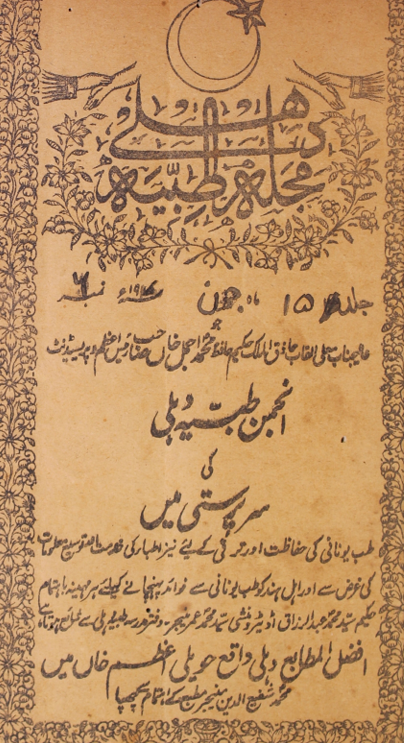 مجلہ طبیہ دہلی
جلد ۱۵ ماہ جون ۱۹۱۷ء نمبر ۶
عالیجناب معلی القاب حاذق الملک حکیم حافظ محمد اجمل خاں صاحب رئیس اعظم و پریسیڈنٹ
انجمن طبیہ دہلی
کی
سرپرستی میں
طب یونانی کی حفاظت اور ترقی کے لئے نیز اطبار کی خدمت اور توسیع معلومات
کی غرض سے اور اہل ہند کو طب یونانی سے فوائد پہنچانے کیلئے ہر مہینہ باہتمام
حکیم سید محمد عبدالرزاق اڈیٹر و منشی سید محمد عمر منیجر۔ دفتر مدرسہ طبیہ دہلی سے شائع ہوتا ہے
افضل المطابع دہلی واقع حویلی اعظم خاں میں
محمد شفیع الدین منیجر مطبع کے اہتمام سے چھپا